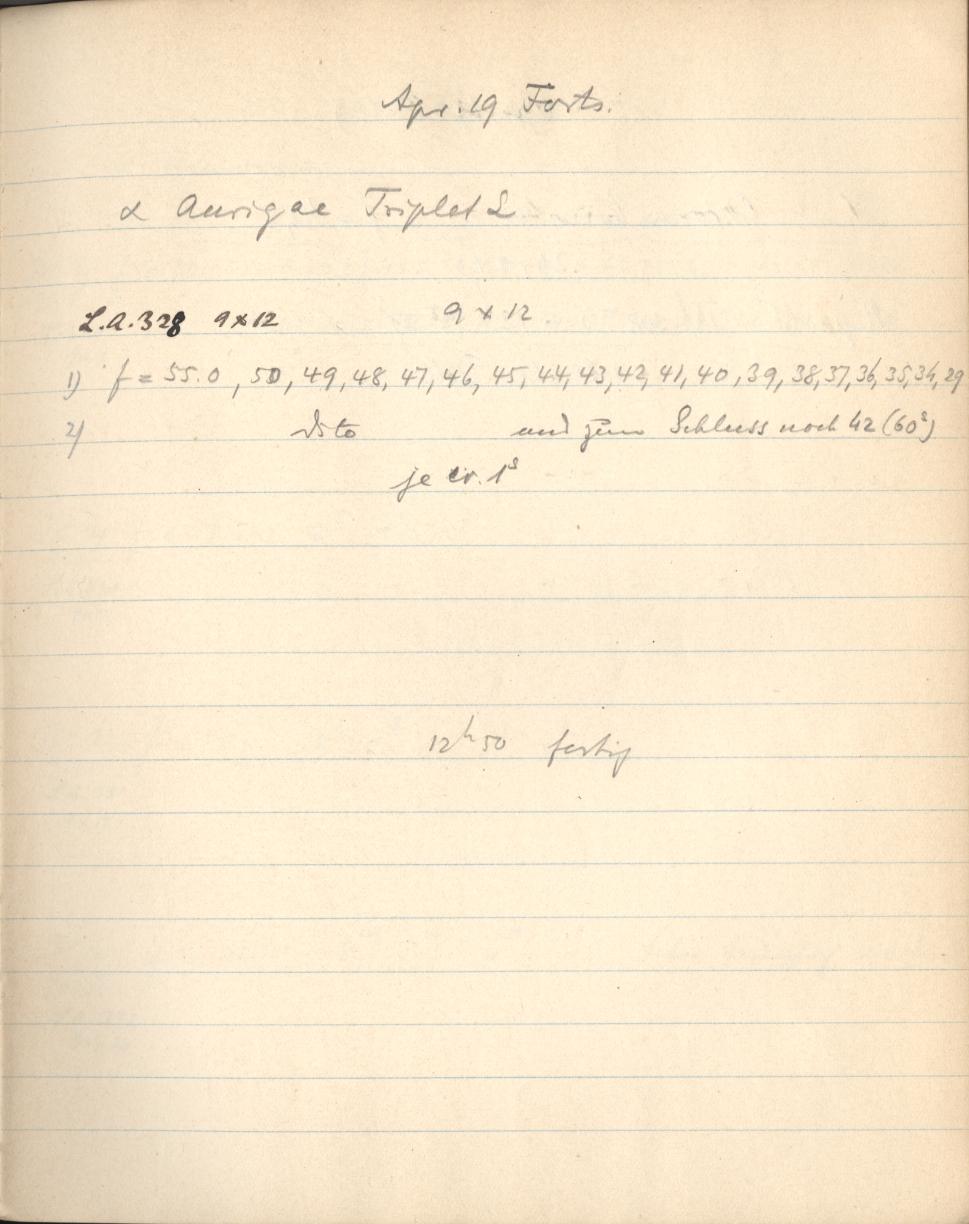 Apr. 19 Forts.
α Aurigae Triplet L
L.A.328 9 x 12 9 x 12.
1) f = 55.0, 50, 49, 48, 47, 46, 45, 44, 43, 42, 41, 40, 39, 38, 37, 36, 35, 34, 29
2) dsto und zum Schluss noch 42 (60ˢ)
je cr. 1ˢ
12ʰ50 fertig